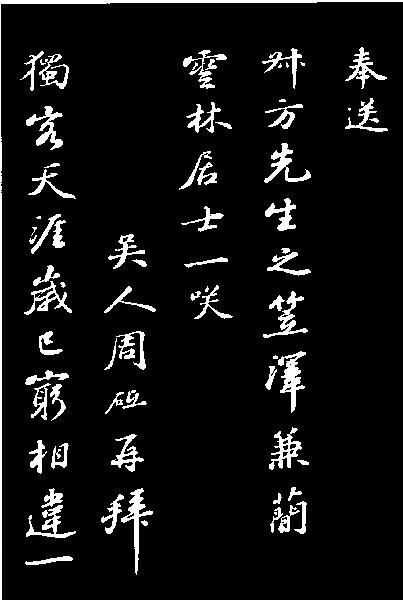 奉送
叔方先生之笠澤兼蕳
雲林居士一咲
吳人周砥再拜
獨客天涯歲已窮相違一